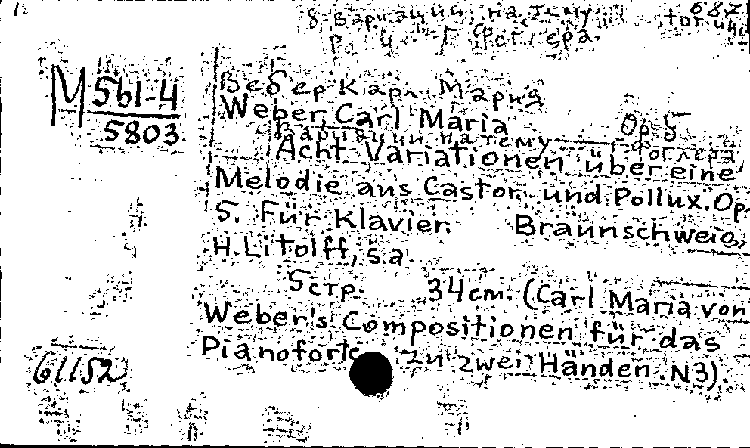 8 вариаций на тему
Фоглера.
М 561-4
5803
Вебер Карл Мария
Weber, Carl Maria
Вариации на тему Фоглера Op. 5
Acht Variationen über eine
Melodie aus Castor und Pollux. Op.
5. Für Klavier. Braunschweig,
H. Litolff, s.a.
5 стр. 34 см. (Carl Maria von
Weber's Compositionen für das
Pianoforte zu zwei Händen. N3).
61152